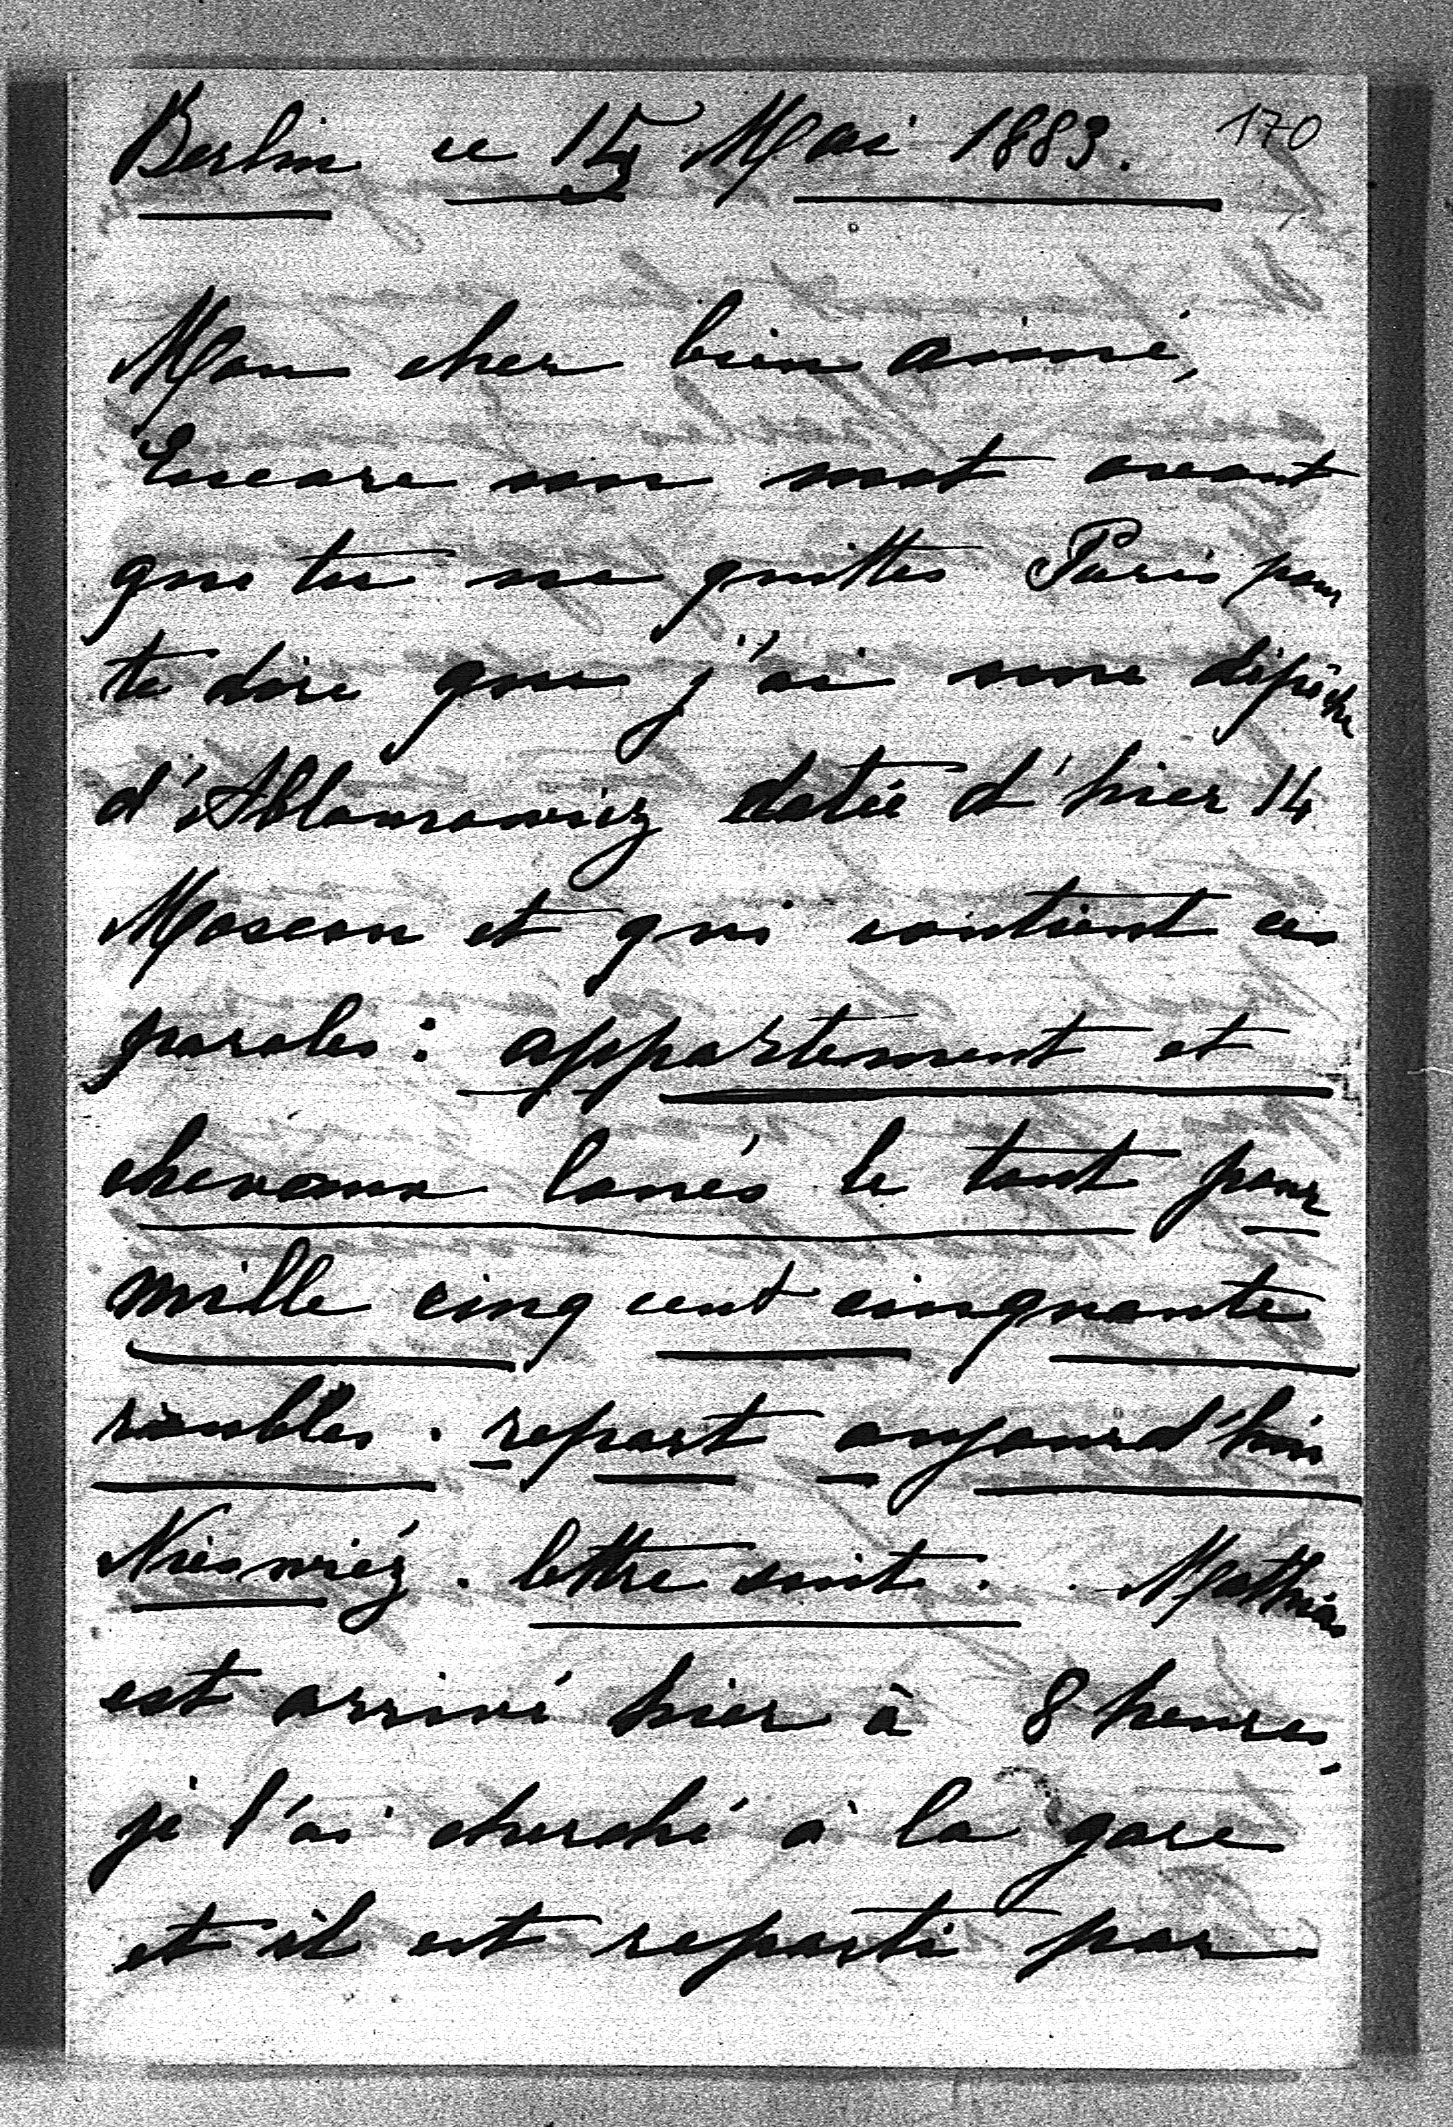 170
Berlin ce 15 Mai 1883.
Mon cher bien aimé,
Encore un mot avant
que tu ne quittes Paris pour
te dire que j'ai une dépêche
d'Ablamowicz datée d'hier 14
Moscou et qui contient ces
paroles : appartement et
chevaux loués le tout pour
mille cinq cent cinquante
roubles . repart aujourd'hui
Nieswiéz . lettre suit . . Mathias
est arrivé hier à 8 heures,
je l'ai cherché à la gare
et il est reparti par